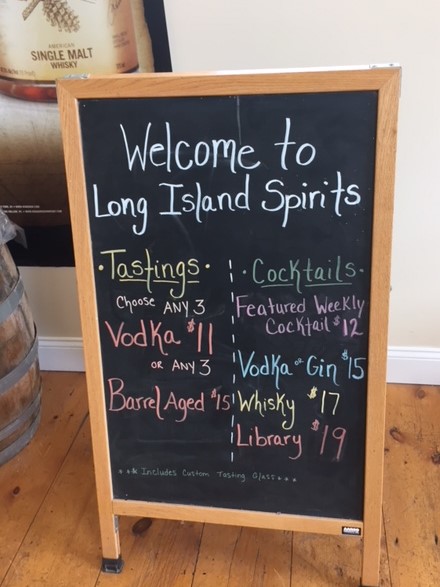 AMERICAN
SINGLE MALT
WHISKY
Welcome to
Long Island Spirits
·Tastings·
Choose ANY 3
Vodka $11
OR ANY 3
Barrel Aged $15
*** Includes Custom Tasting Glass ***
·Cocktails·
Featured Weekly
Cocktail $12
Vodka or Gin $15
Whisky $17
Library $19